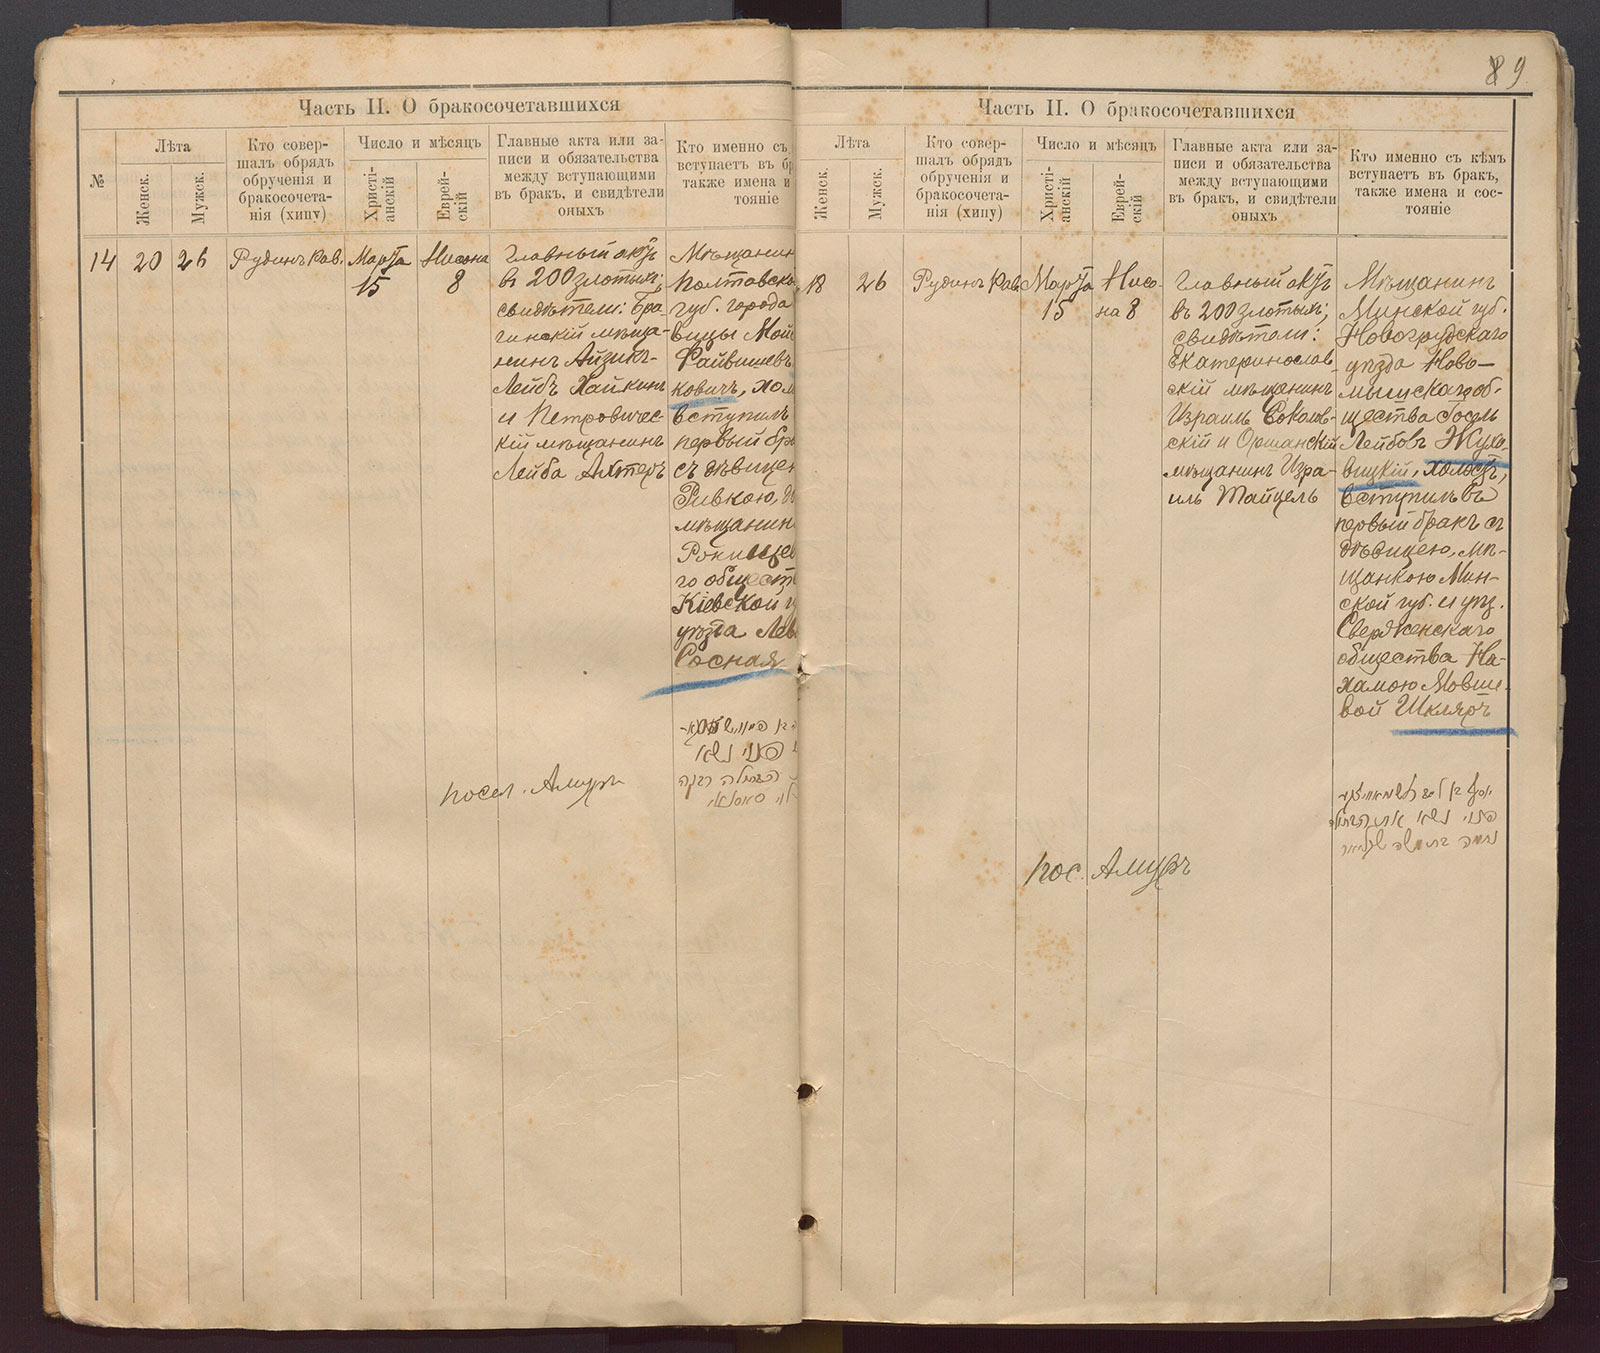 89
Часть II. О бракосочетавшихся
№
Лѣта
Женск.
Мужск.
Кто совер-
шалъ обрядъ
обрученія и
бракосочета-
нія (хипу)
Число и мѣсяцъ
Христі-
анскій
Еврей-
скій
Главные акта или за-
писи и обязательства
между вступающими
въ бракъ, и свидѣтели
оныхъ
Кто именно съ
вступаетъ въ бр
также имена и
тояніе
14
20
26
Рудинъ Рав.
Марта
15
Нисона
8
Главный актъ
въ 200 злотыхъ;
свидѣтели: Бра-
гинскій мѣща-
нинъ Айзикъ-
Лейбъ Хайкинъ
и Петровичес-
кій мѣщанинъ
Лейба Ахтеръ
Мѣщанин
Полтавско
губ. города
вицы Мой
Файвишевъ
ковичъ, хол
вступилъ
первый бра
съ дѣвицею
Ривкою,
мѣщанин
Рокищев
го общест
Кіевской г
уѣзда Лев
Сосная
посел. Амуръ
Часть II. О бракосочетавшихся
Лѣта
Женск.
Мужск.
Кто совер-
шалъ обрядъ
обрученія и
бракосочета-
нія (хипу)
Число и мѣсяцъ
Христі-
анскій
Еврей-
скій
Главные акта или за-
писи и обязательства
между вступающими
въ бракъ, и свидѣтели
оныхъ
Кто именно съ кѣмъ
вступаетъ въ бракъ,
также имена и сос-
тояніе
18
26
Рудинъ Рав.
Марта
15
Нисо-
на 8
Главный актъ
въ 200 злотыхъ;
свидѣтели:
Екатеринослав-
скій мѣщанинъ
Израиль Соколов-
скій и Оршанскій
мѣщанинъ Изра-
иль Тайцель
Мѣщанинъ
Минской губ.
Новогрудскаго
уѣзда Ново-
мышскаго об-
щества Іосель
Лейбовъ Жухо-
вицкій, холостъ,
вступилъ въ
первый бракъ съ
дѣвицею, мѣ-
щанкою Мин-
ской губ. и уѣз.
Сверженскаго
общества На-
хамою Мовше-
вой Шкляръ
פנוי נשא את הבתולה
נחמה בת משה שקליאר
пос. Амуръ